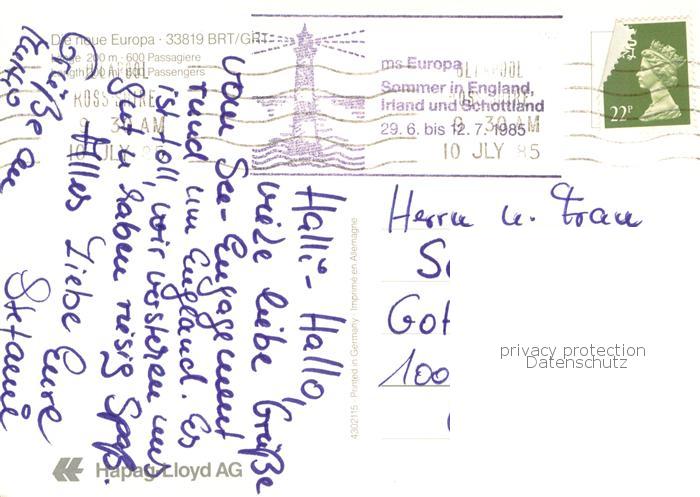 Die neue Europa · 33819 BRT/GRT
Länge 200 m · 600 Passagiere
Length 200 m · 600 Passengers
ms Europa
Sommer in England,
Irland und Schottland
29. 6. bis 12. 7. 1985
9 30 AM
10 JLY 85
9 30 AM
10 JLY 85
22P
Halli-Hallo,
viele liebe Grüße
vom See-Engagement
rund um England. Es
ist toll, wir verstehen uns
gut u. haben riesig Spaß.
Alles Liebe Eure
Stefanie
Grüße an
4302115 · Printed in Germany · Imprimé en Allemagne
Herrn u. Frau
Got
100
privacy protection
Datenschutz
Hapag-Lloyd AG